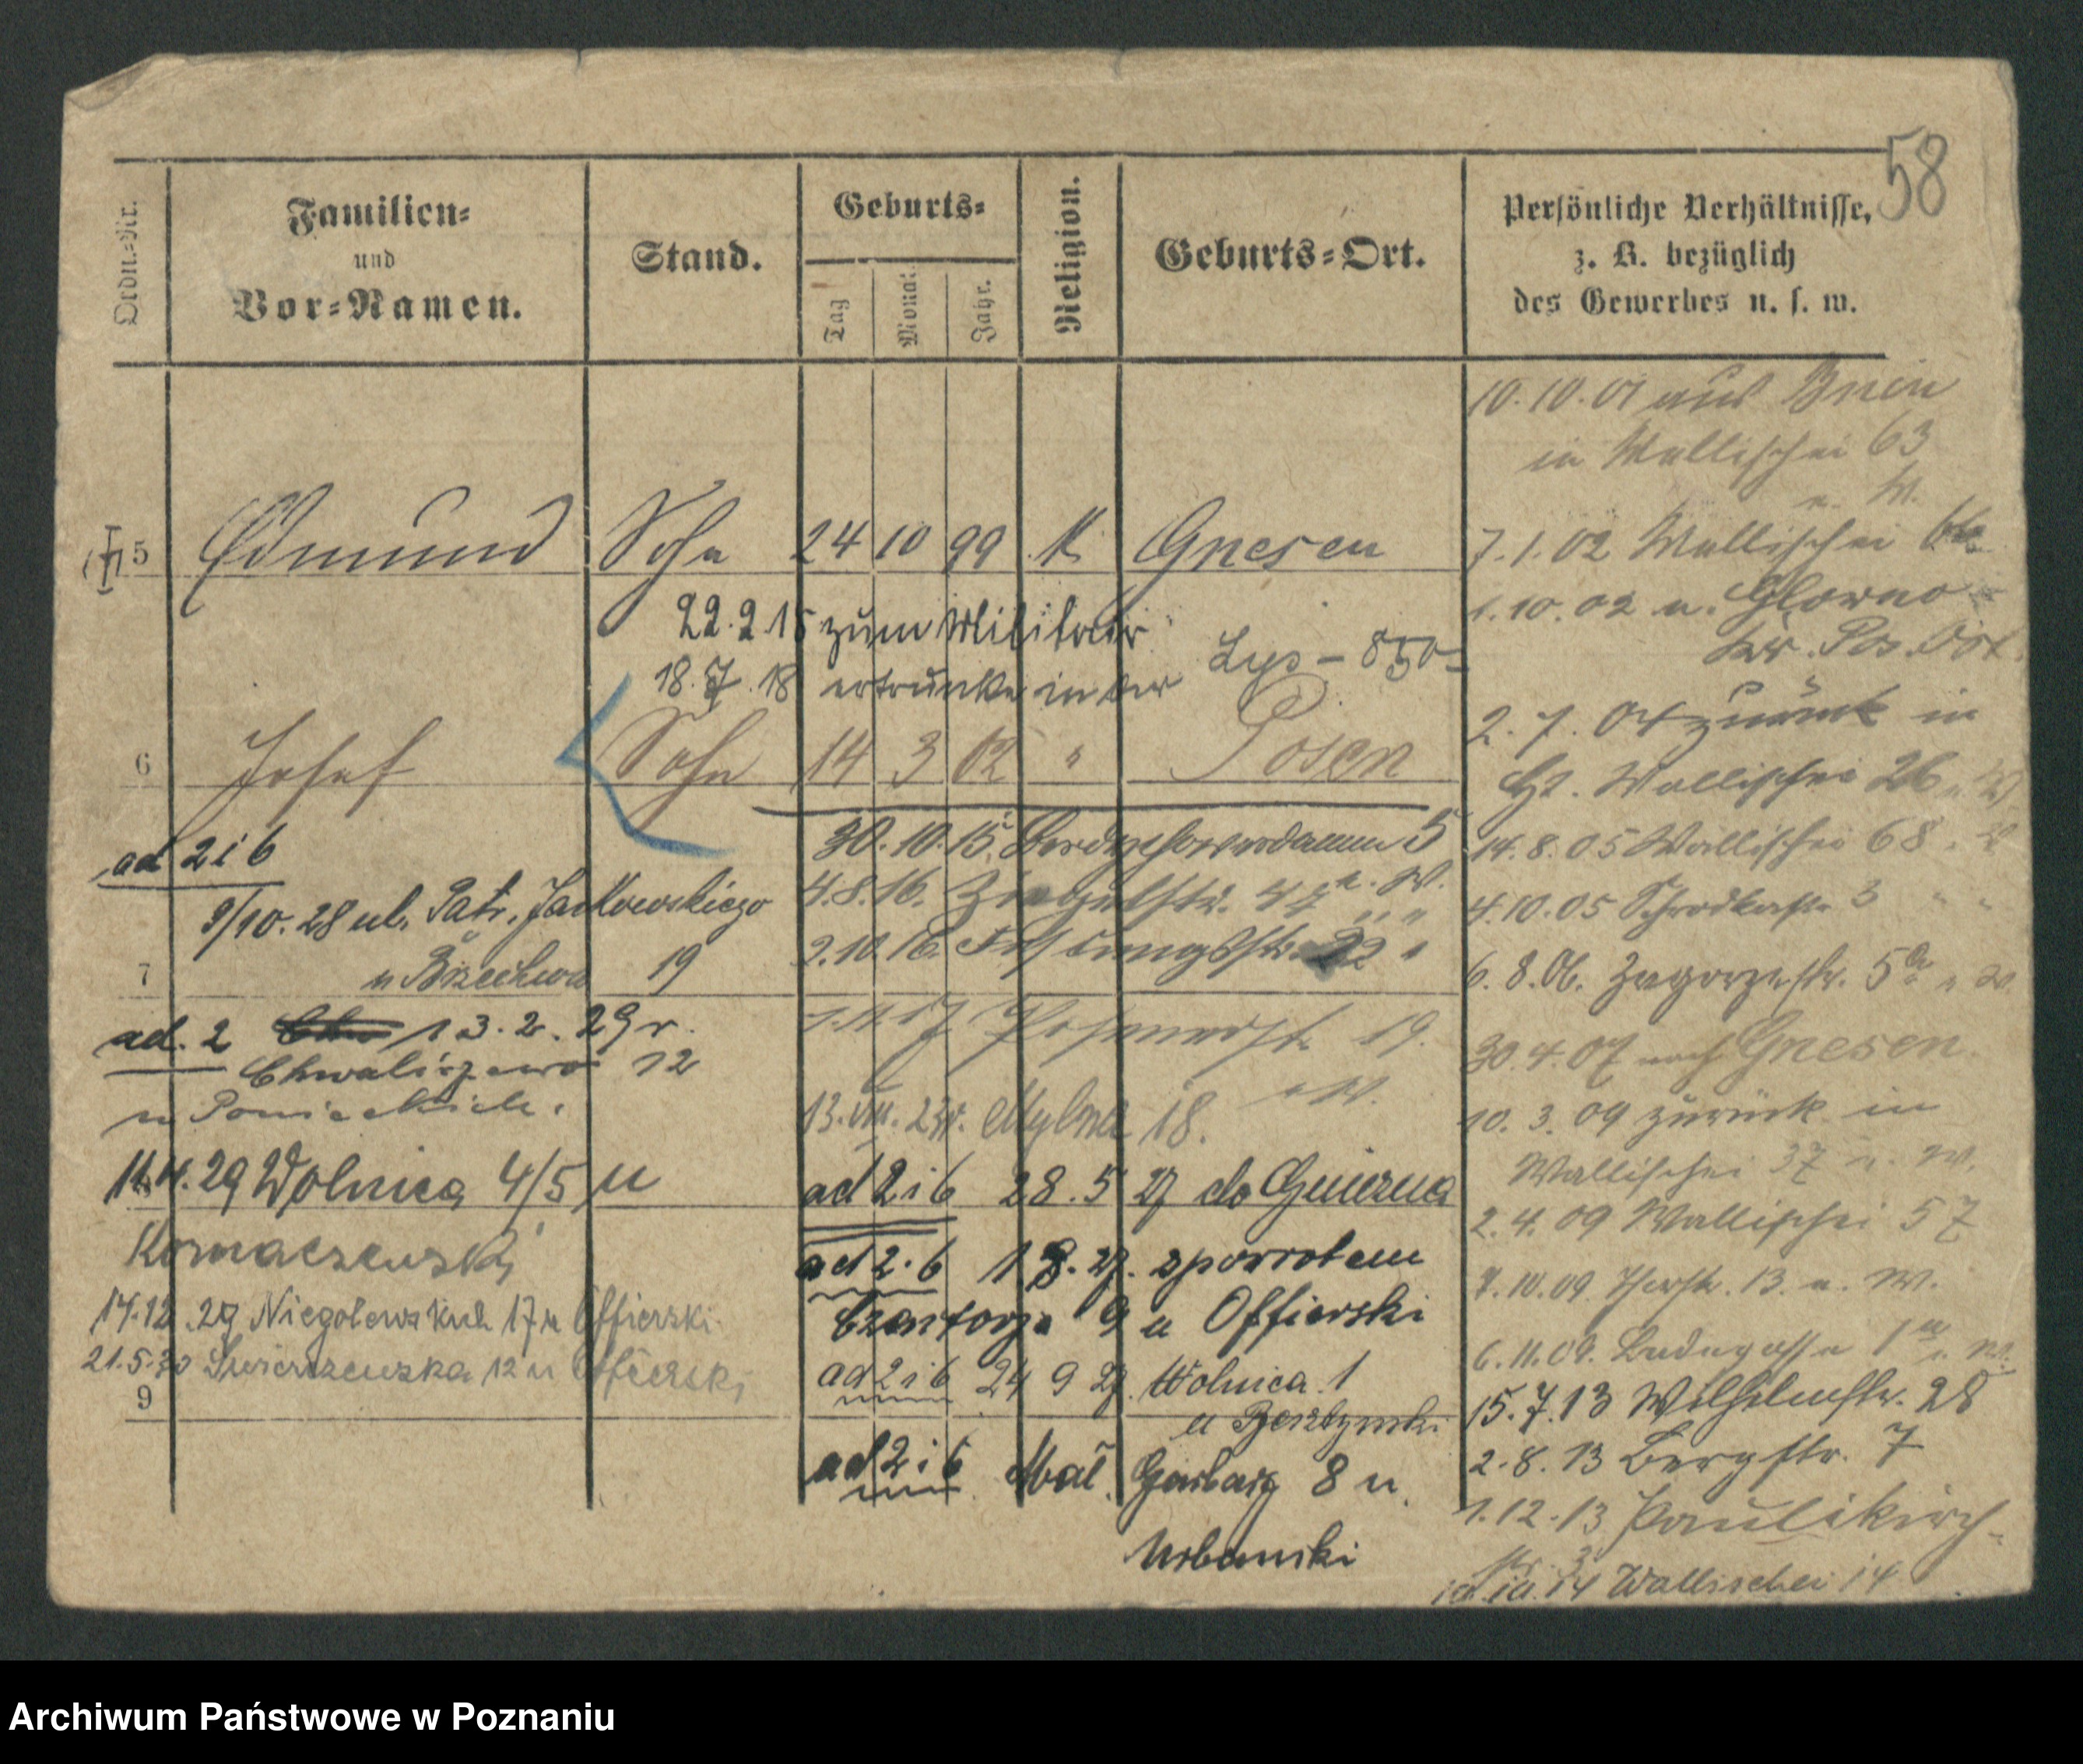 58
Ordn.-Nr.
Familien-
und
Vor-Namen.
Stand.
Geburts-
Tag
Monat.
Jahr.
Religion.
Geburts-Ort.
Persönliche Verhältnisse,
z. B. bezüglich
des Gewerbes u. s. w.
5 Edmund Sohn 24 10 99 K Gnesen
22.2.15 zum Militär
18.7.18 ertrunken in der Lys – 850
6 Josef Sohn 14 3 02 " Posen
ad 2 i 6
9/10.28 ul. Patr. Jackowskiego
u Brzechwa 19
7
ad. 2 13.2.29 r.
Chwaliszewo 12
u
11.4.29 Wolnica 4/5 u
Kornaszewski
14.12.29 Niegolewskich 17 u Offierski
21.5.30 Swierczewska 12 u Offierski
9
30.10.15 5
4.8.16. u. W.
2.10.16. 22 "
19.
u W.
13.VIII.23r. Mylna 18.
ad 2 i 6 28.5 27 do Gniezna
ad 2.6 1 8.27. z powrotem
Czartorja 9 u Offierski
ad 2 i 6 24 9 27. Wolnica 1
u
ad 2 i 6 Garbary 8 u.
Urbanski
10.10.01 aus Bnin
in Wallischei 63
u. W.
7.1.02 Wallischei
1.10.02 n. Glowno
Kr. Pos. Ost.
2.7.04 zurück in
Wallischei 26 u W
14.8.05 Wallischei 68
4.10.05 Schrodkastr. 3 " "
6.8.06. Zagorzestr. 5a u W.
30.4.07 nach Gnesen.
10.3.09 zurück in
Wallischei 37 u. W.
2.4.09 Wallischei 57
7.10.09 13. u. W.
6.11.09. Badegasse 1
15.7.13 Wilhelmstr. 28
2.8.13 Bergstr. 7
1.12.13 Paulikirch-
str. 3
14 Wallischei 14
Archiwum Państwowe w Poznaniu